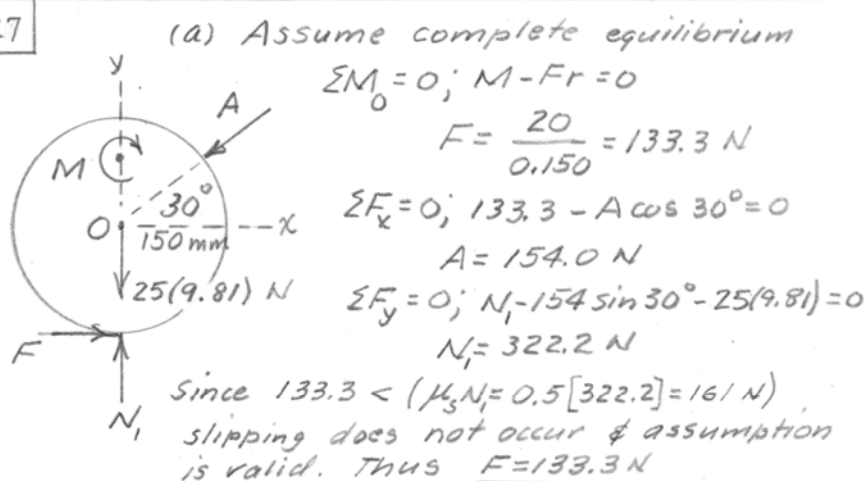 .7
(a) Assume complete equilibrium
ΣM_O = 0; M - Fr = 0
F = 20/0.150 = 133.3 N
ΣF_x = 0; 133.3 - A cos 30° = 0
A = 154.0 N
ΣF_y = 0; N_1 - 154 sin 30° - 25(9.81) = 0
N_1 = 322.2 N
Since 133.3 < (μ_s N_1 = 0.5[322.2] = 161 N)
slipping does not occur & assumption
is valid. Thus F = 133.3 N
y
A
M
30°
O
150 mm
x
25(9.81) N
F
N_1